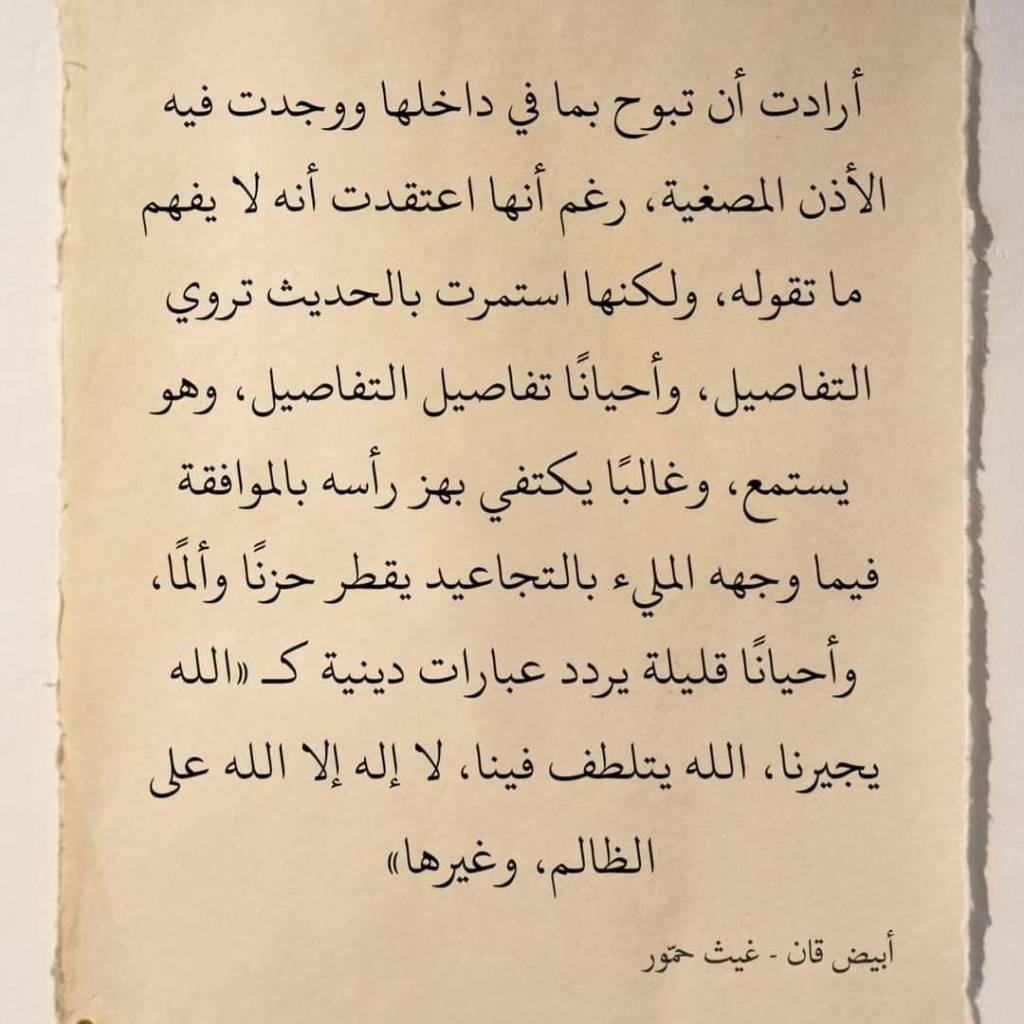 أرادت أن تبوح بما في داخلها ووجدت فيه
الأذن المصغية، رغم أنها اعتقدت أنه لا يفهم
ما تقوله، ولكنها استمرت بالحديث تروي
التفاصيل، وأحيانًا تفاصيل التفاصيل، وهو
يستمع، وغالبًا يكتفي بهز رأسه بالموافقة
فيما وجهه المليء بالتجاعيد يقطر حزنًا وألمًا،
وأحيانًا قليلة يردد عبارات دينية كـ «الله
يجيرنا، الله يتلطف فينا، لا إله إلا الله على
الظالم، وغيرها»
أبيض قان - غيث حمّور